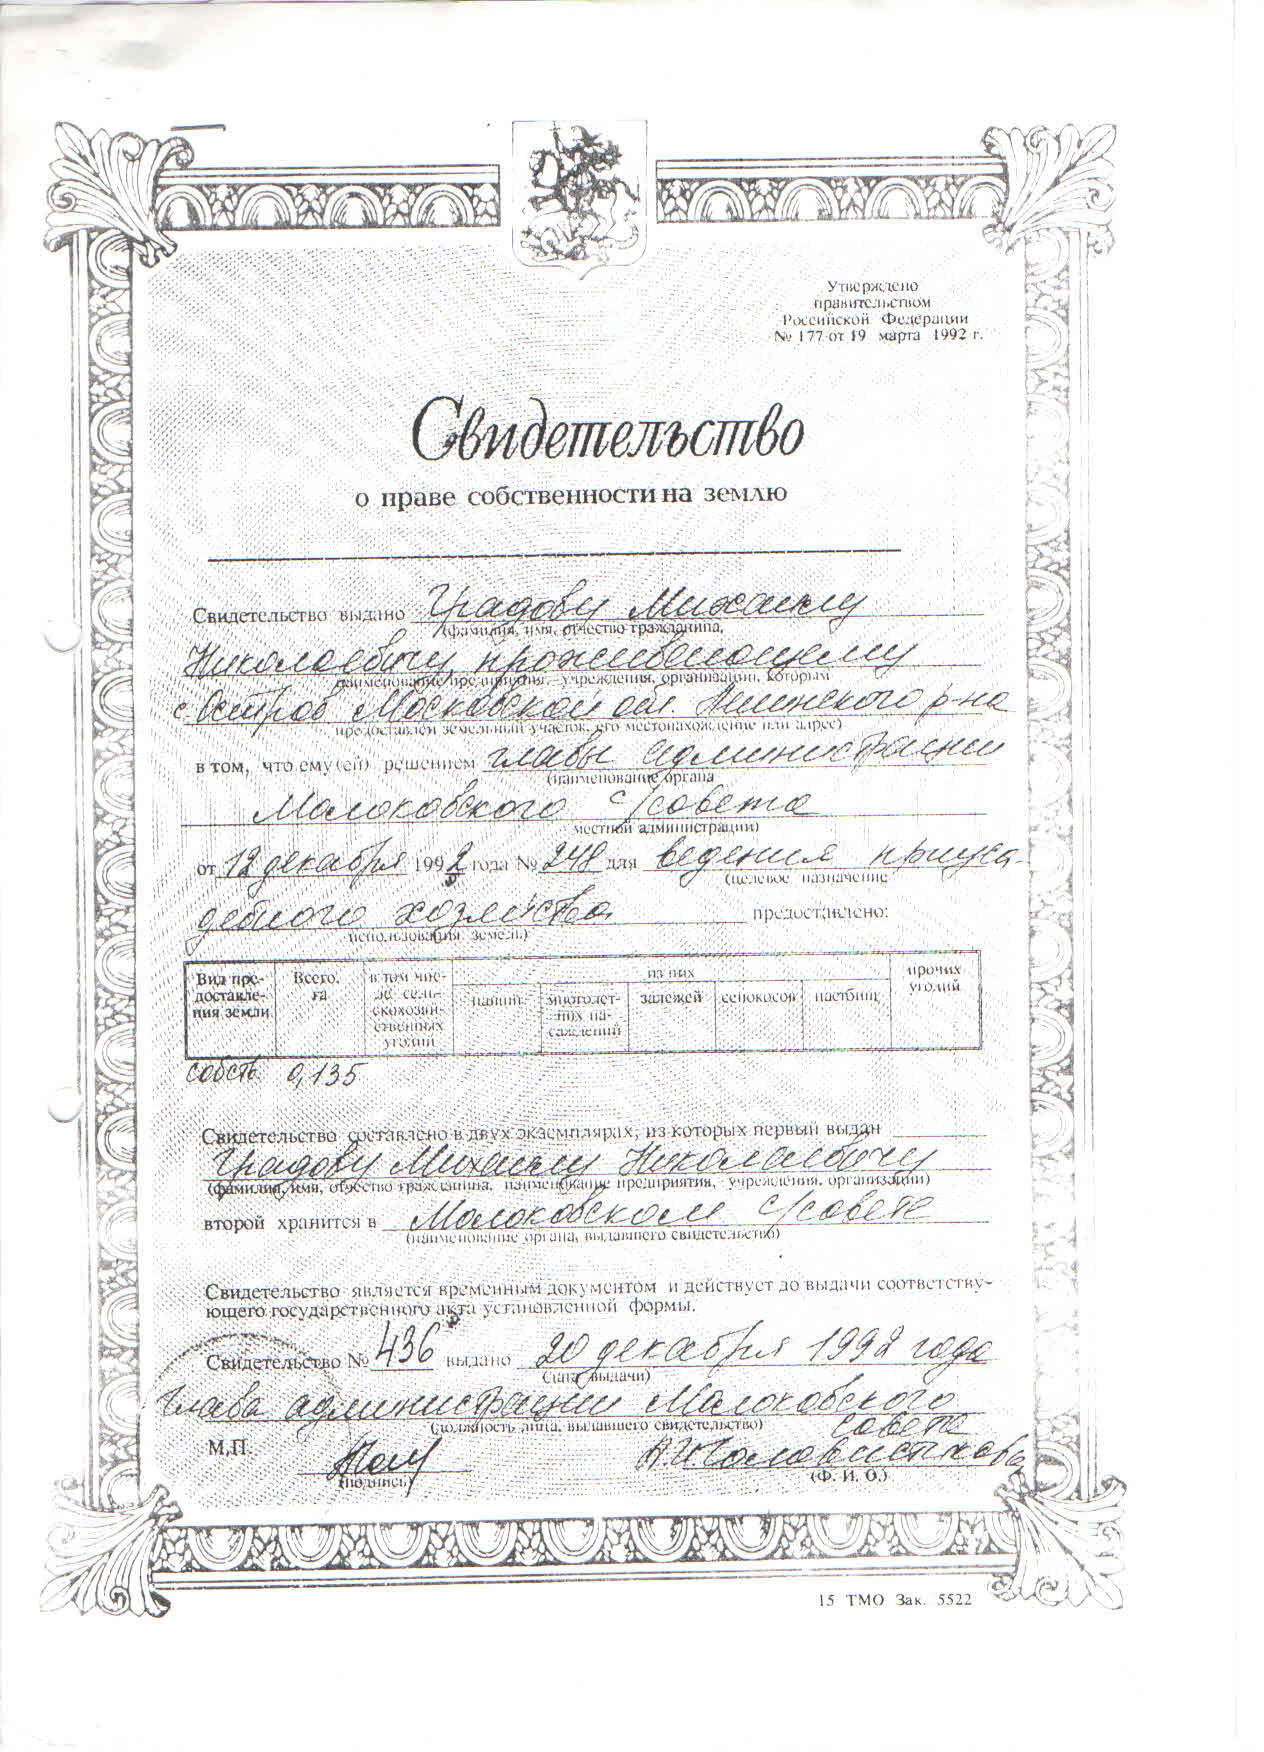 Утверждено
правительством
Российской Федерации
№ 177 от 19 марта 1992 г.
Свидетельство
о праве собственности на землю
Свидетельство выдано Градову Михаилу
(фамилия, имя, отчество гражданина,
Николаевичу, проживающему
наименование предприятия, учреждения, организации, которым
с. Остров Московской обл. Ленинского р-на
предоставлен земельный участок, его местонахождение или адрес)
в том, что ему (ей) решением главы администрации
(наименование органа
Молоковского с/совета
местной администрации)
от 12 декабря 1992 года № 248 для ведения приуса-
(целевое назначение
дебного хозяйства предоставлено:
использования земель)
Вид пре-доставле-ния земли Всего, га в том чис-ле сель-скохозяй-ственных угодий из них прочих угодий
пашни многолет-них на-саждений залежей сенокосов пастбищ
собств. 0,135
Свидетельство составлено в двух экземплярах, из которых первый выдан
Градову Михаилу Николаевичу
(фамилия, имя, отчество гражданина, наименование предприятия, учреждения, организации)
второй хранится в Молоковском с/совете
(наименование органа, выдавшего свидетельство)
Свидетельство является временным документом и действует до выдачи соответству-
ющего государственного акта установленной формы.
Свидетельство № 436 выдано 20 декабря 1992 года
(дата выдачи)
Глава администрации Молоковского
(должность лица, выдавшего свидетельство) совета
М.П.
(подпись) (Ф. И. О.)
15 ТМО Зак. 5522